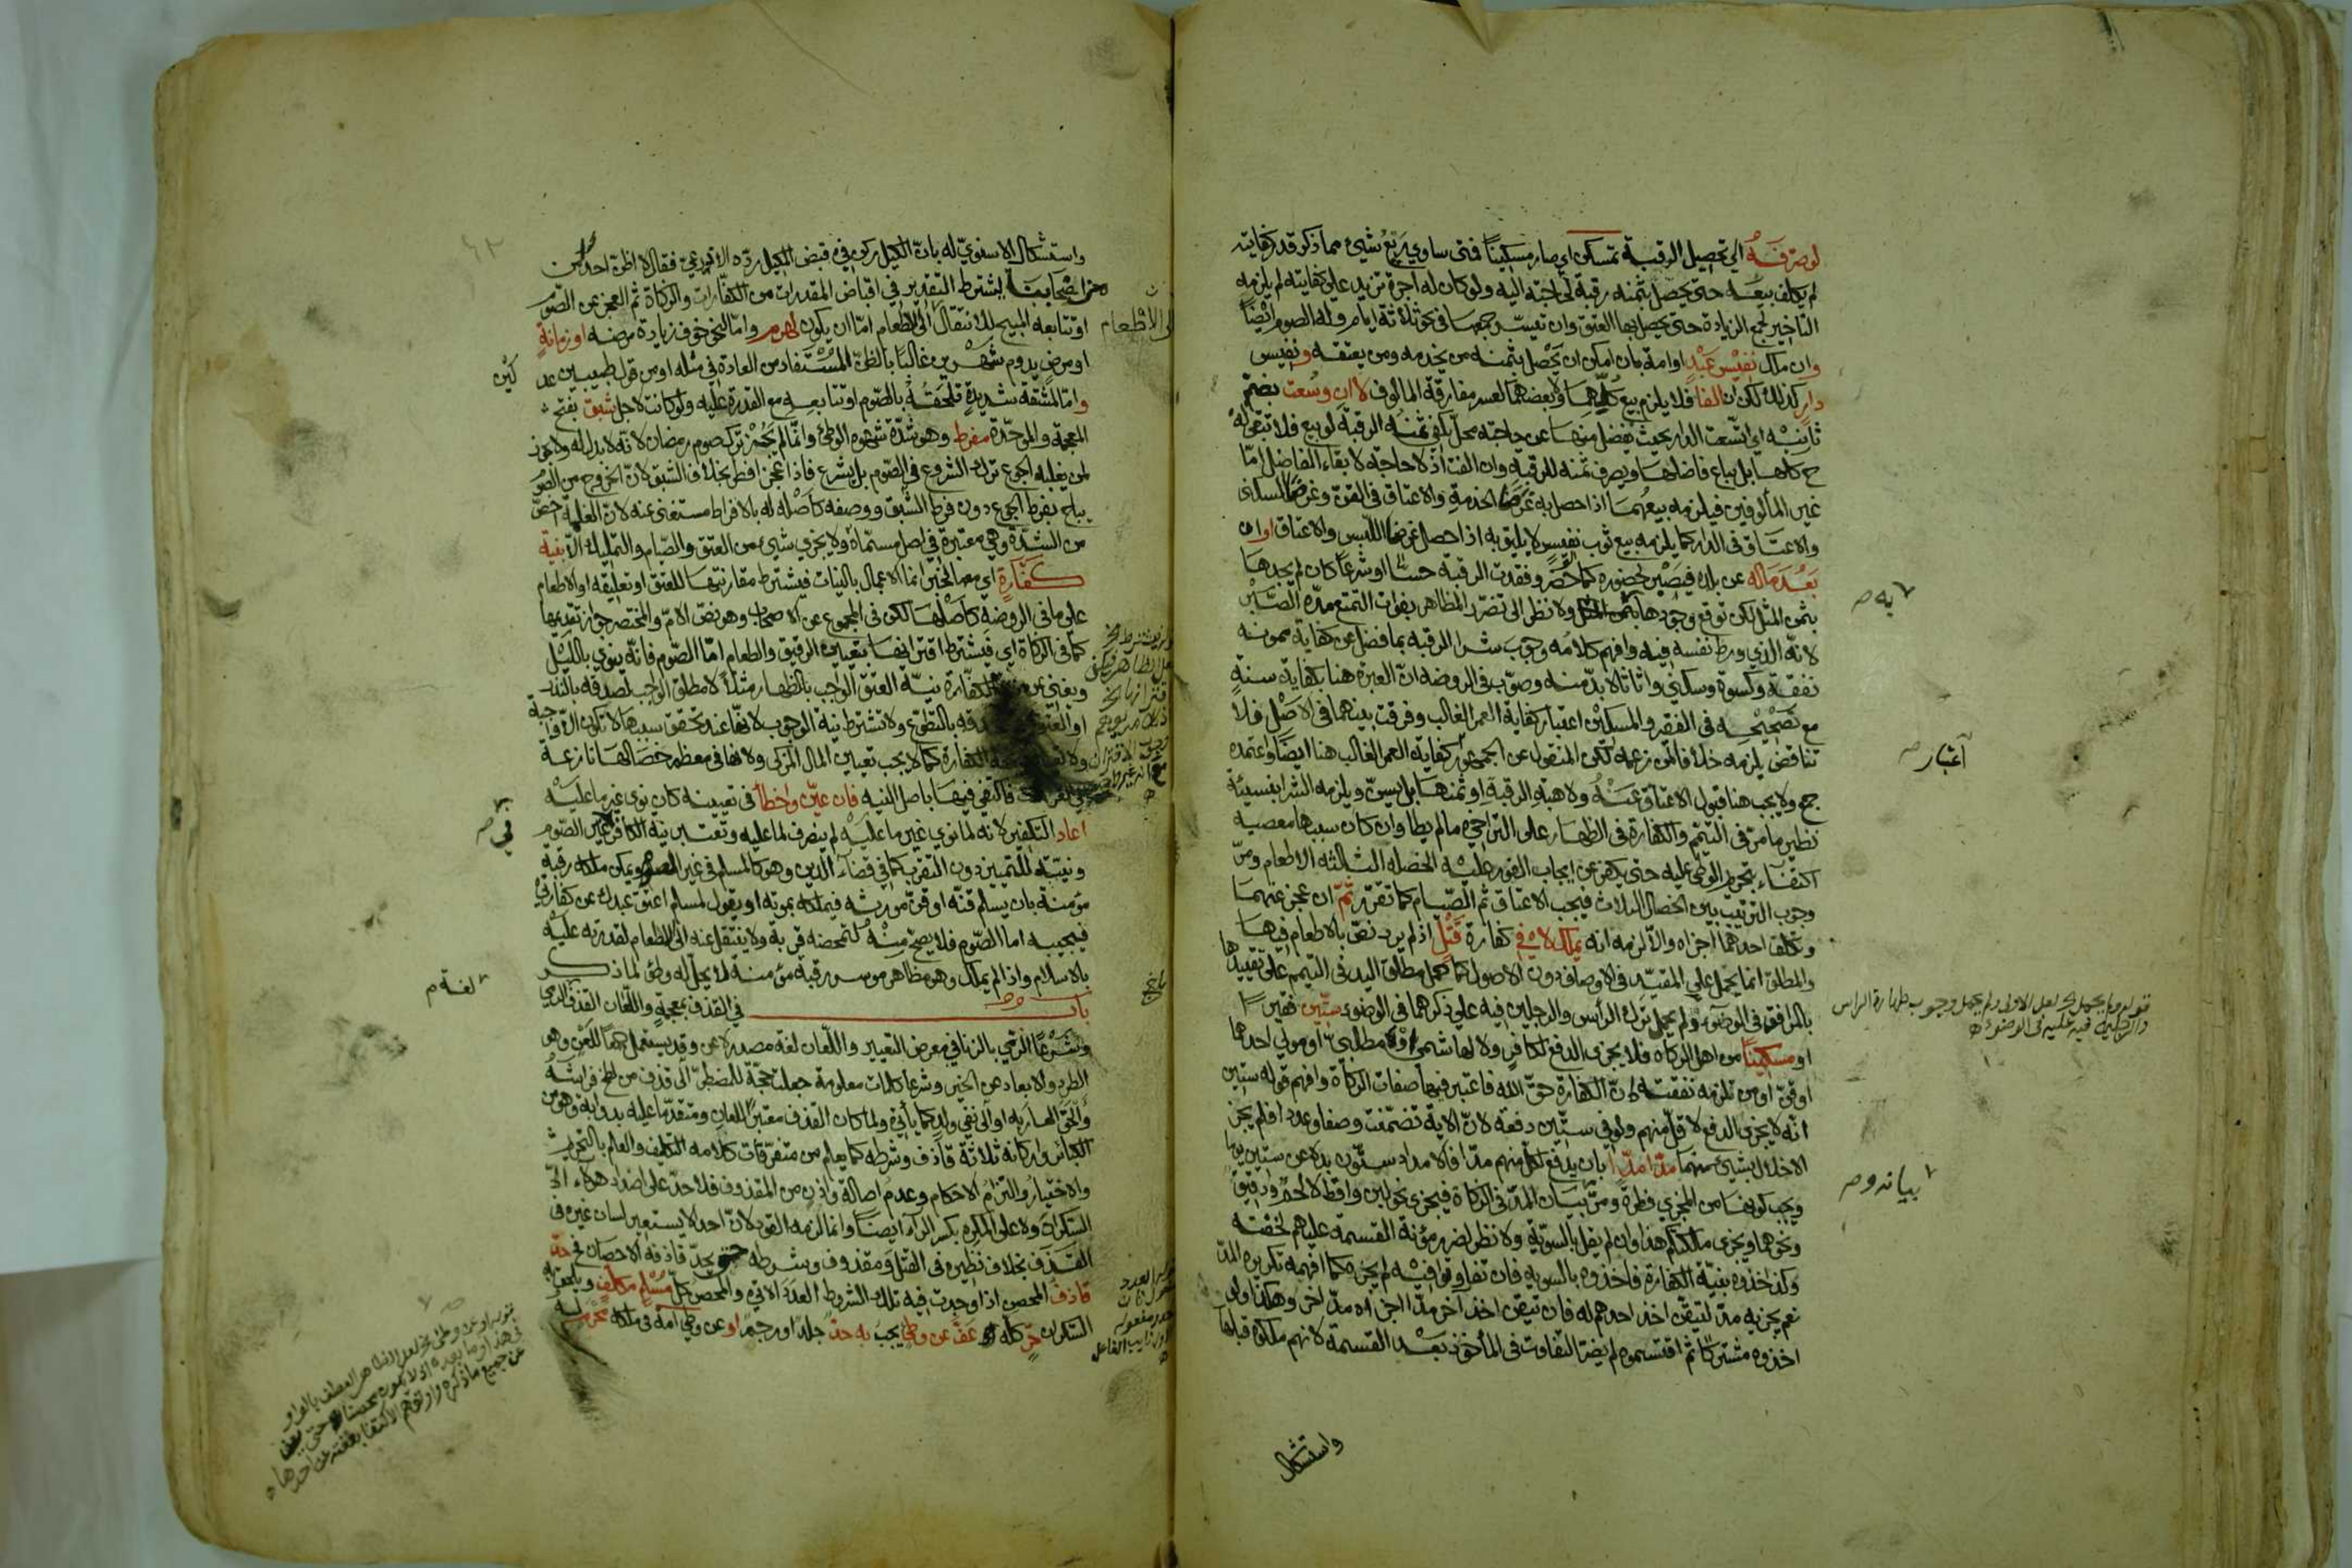 لو صرفه الي تحصيل الرقبة تمسكن اي صار مسكينا فمتى ساوى ربع شيء مما ذكر قدر كفايته
لم يكلف بيعه حتى يحصل بثمنه رقبة لحاجته اليه ولو كان له اجرة تزيد علي كفايته لم يلزمه
التأخير لجمع الزيادة حتى يحصل بها العتق وان تيسر جمعها في نحو ثلاثة ايام وله الصوم ايضا
وان ملك نفيس عبد او امة بان امكن ان يحصل بثمنه من يخدمه ومن يعتقه ونفيس
دار كذلك لكن ان الفا فلا يلزم بيع كليهما ولا بعضهما لعسر مفارقة المالوف لا ان وسعت بضم
ثانيه اي اتسعت الدار بحيث يفضل منها عن حاجته محل يكفي ثمنه الرقبة لو بيع فلا تبقى له
ح كلها بل يباع فاضلها ويصرف ثمنه للرقبة وان الفت اذ لا حاجة لابقاء الفاضل امّا
غير المألوفين فيلزمه بيعهما اذا حصل به غرض الخدمة والاعتاق في القن وغرض السكنى
والاعتاق في الدار كما يلزمه بيع ثوب نفيس لا يليق به اذا حصل غرض اللبس والاعتاق او ان
بعد ماله عن بلده فيصبر لحضوره كما لو حضر وفقدت الرقبة حسا او شرعا كان لم يجدها
بثمن المثل لكن توقع وجودها ولا نظر الى تضرر المظاهر بفوات التمتع مدة الصبر
لانه الذي ورط نفسه فيه وافهم كلامه وجوب شرا الرقبة بما فضل عن كفاية ممونه
نفقة وكسوة وسكنى واثاثا لا بد منه وصوب في الروضة ان العبرة هنا بكفاية سنة
مع تصحيحه في الفقير والمسكين اعتبار كفاية العمر الغالب وفرقت بينهما في الاصل فلا
تناقض يلزمه خلافا لمن زعمه لكن المنقول عن الجمهور كفاية العمر الغالب هنا ايضا واعتمده
جمع ولا يجب هنا قبول الاعتاق عنه ولا هبة الرقبة او ثمنها بل يسن ويلزمه الشرا بنسيئة
نظير ما مر في التيمم والكفارة في الظهار على التراخي ما لم يطأ وان كان سببها معصية
اكتفاء بتحريم الوطي عليه حتى يكفر عن ايجاب الفور عليه الخصلة الثالثة الاطعام ومر
وجوب الترتيب بين الخصال الثلاث فيجب الاعتاق ثم الصيام كما تقرر ثم ان عجز عنهما
وتكلف احدهما اجزاه والا لزمه انه يملك لا في كفارة قتل اذ لم يرد نص بالاطعام فيها
والمطلق انما يحمل علي المقيد في الاوصاف دون الاصول كما حمل مطلق اليد في التيمم على تقييدها
بالمرافق في الوضوء ولم يحمل ترك الرأس والرجلين فيه علي ذكرهما في الوضوء ستين فقيرا
او مسكينا من اهل الزكاة فلا يجزى الدفع لكافر ولا لهاشمي او مطلبي او مولى احدهما
او قن او من تلزمه نفقته لان الكفارة حق الله فاعتبر فيها صفات الزكاة وافهم قوله ستين
انه لا يجزى الدفع لاقل منهم ولو في ستين دفعة لان الاية تضمنت وصفا وعددا فلم يجز
الاخلال بشيئ منهما مدا مدا بان يدفع لكل منهم مدا فالامداد ستون بدلا عن ستين يوما
ويجب كونها من المجزي فطرة ومر بيان المد في الزكاة فيجزى نحو لبن واقط لا لحم ودقيق
ونحوهما ويجزى ملكتكم هذا وان لم يقل بالسوية ولا نظر لضرر مؤنة القسمة عليهم لخفته
وكذا خذوه بنية الكفارة فاخذوه بالسوية فان تفاوتوا فيه لم يجز كما افهمه تكريره المد
نعم يجزيه مد لتيقن اخذ احدهم له فان تيقن اخذ اخر مدا اجزاه مد اخر وهكذا ولو
اخذوه مشتركا ثم اقتسموه لم يضر التفاوت في المأخوذ بعد القسمة لانهم ملكوه قبلها
واستشكال
به م
آعتبار
بيانه وم
واستشكال الاسنوي له بان الكيل ركن في قبض المكيل رده الاذرعي فقال لا اظن احدا من
اصحابنا يشترط التقدير في اقباض المقدرات من الكفارات والزكاة ثم العجز عن الصوم
او تتابعه المبيح للانتقال الى الاطعام اما ان يكون لهرم واما لنحو خوف زيادة مرضه او زمانة
او مرض يدوم شهرين غالبا بالظن المستفاد من العادة في مثله او من قول طبيبين عد
واما لمشقة شديدة تلحقه بالصوم او تتابعه مع القدرة عليه ولو كانت لاجل شبق بفتح
المعجمة والموحدة مفرط وهو شدة شهوة الوطئ وانما لم يجز ترك صوم رمضان لانه لا بدل له ولا يجوز
لمن يغلبه الجوع ترك الشروع في الصوم بل يشرع فاذا عجز افطر بخلاف الشبق لان الخروج من الصوم
يباح بفرط الجوع دون فرط الشبق ووصفه كأصله له بالافراط مستغنى عنه لان الغلمة اخص
من الشدة وهي معتبرة في اصل مسماه ولا يجزي شيء من العتق والصيام والتمليك الا بنية
كفارة اي مع الخبر انما الاعمال بالنيات فيشترط مقارنتها للعتق او تعليقه او الاطعام
على ما في الروضة كأصلها لكن في المجموع عن الاصحاب وهو نص الام والمختصر جواز تقديمها
كما في الزكاة اي فيشترط اقترانها بتعيين الرقيق والطعام اما الصوم فانه ينوي بالليل
ويغني عن نية الكفارة نية العتق الواجب بالظهار مثلا لا مطلق الواجب لصدقه بالنذر
بالتطوع ولا تشترط نية الوجوب لانها عند تحقق سببها لا تكون الا واجبة
الكفارة كما لا يجب تعيين المال المزكى ولانها في معظم خصالها نازعة
فاكتفي فيها باصل النية فان عين واخطأ في تعيينه كان نوى غير ما عليه
اعاد التكفير لانه لما نوي غير ما عليه لم ينصرف لما عليه وتعتبر نية الكافر غير الصوم
ونيته للتمييز دون التقرب كما في قضاء الدين وهو كالمسلم في غير الصوم ويمكن ملكه رقبة
مؤمنة بان يسلم قنه او قن مورثه فيملكه بموته او يقول لمسلم اعتق عبدك عن كفارتي
فيجيبه اما الصوم فلا يصح منه لتمحضه قربة ولا ينتقل عنه الى الاطعام لقدرته عليه
بالاسلام واذا لم يملك وهو مظاهر موسر رقبة مؤمنة لا يحل له وطئ لما ذكر
باب في القذف بمعجمة واللعان القذف الرمي
وشرعا الرمي بالزنا في معرض التعيير واللعان لغة مصدر لاعن وقد يستعمل جمعا للعن وهو
الطرد والابعاد عن الخير وشرعا كلمات معلومة جعلت حجة للمضطر الى قذف من لطخ فراشه
والحق العار به او الى نفي ولد كما يأتي ولما كان القذف معتبرا للعان ومتقدما عليه بدأ به وهو من
الكبائر واركانه ثلاثة قاذف وشرطه كما يعلم من متفرقات كلامه التكليف والعلم بالتحريم
والاختيار والتزام الاحكام وعدم اصالة واذن من المقذوف فلا حد على اضداد هؤلاء الا
السكران ولا على المكره بكسر الراء ايضا وانما لزمه القود لان احدا لا يستعير لسان غيره في
القذف بخلاف نظيره في القتل ومقذوف وشرطه حتى يحد قاذفه الاحصان فح حد
قاذف المحصن اذا وجدت فيه تلك الشروط العدد الاتي والمحصن كل مسلم مكلف ويلحق به
السكران حر كله عف عن وطئ يجب به حد جلدا او رجما او عن وطئ امة في ملكه محرمة
لغة م